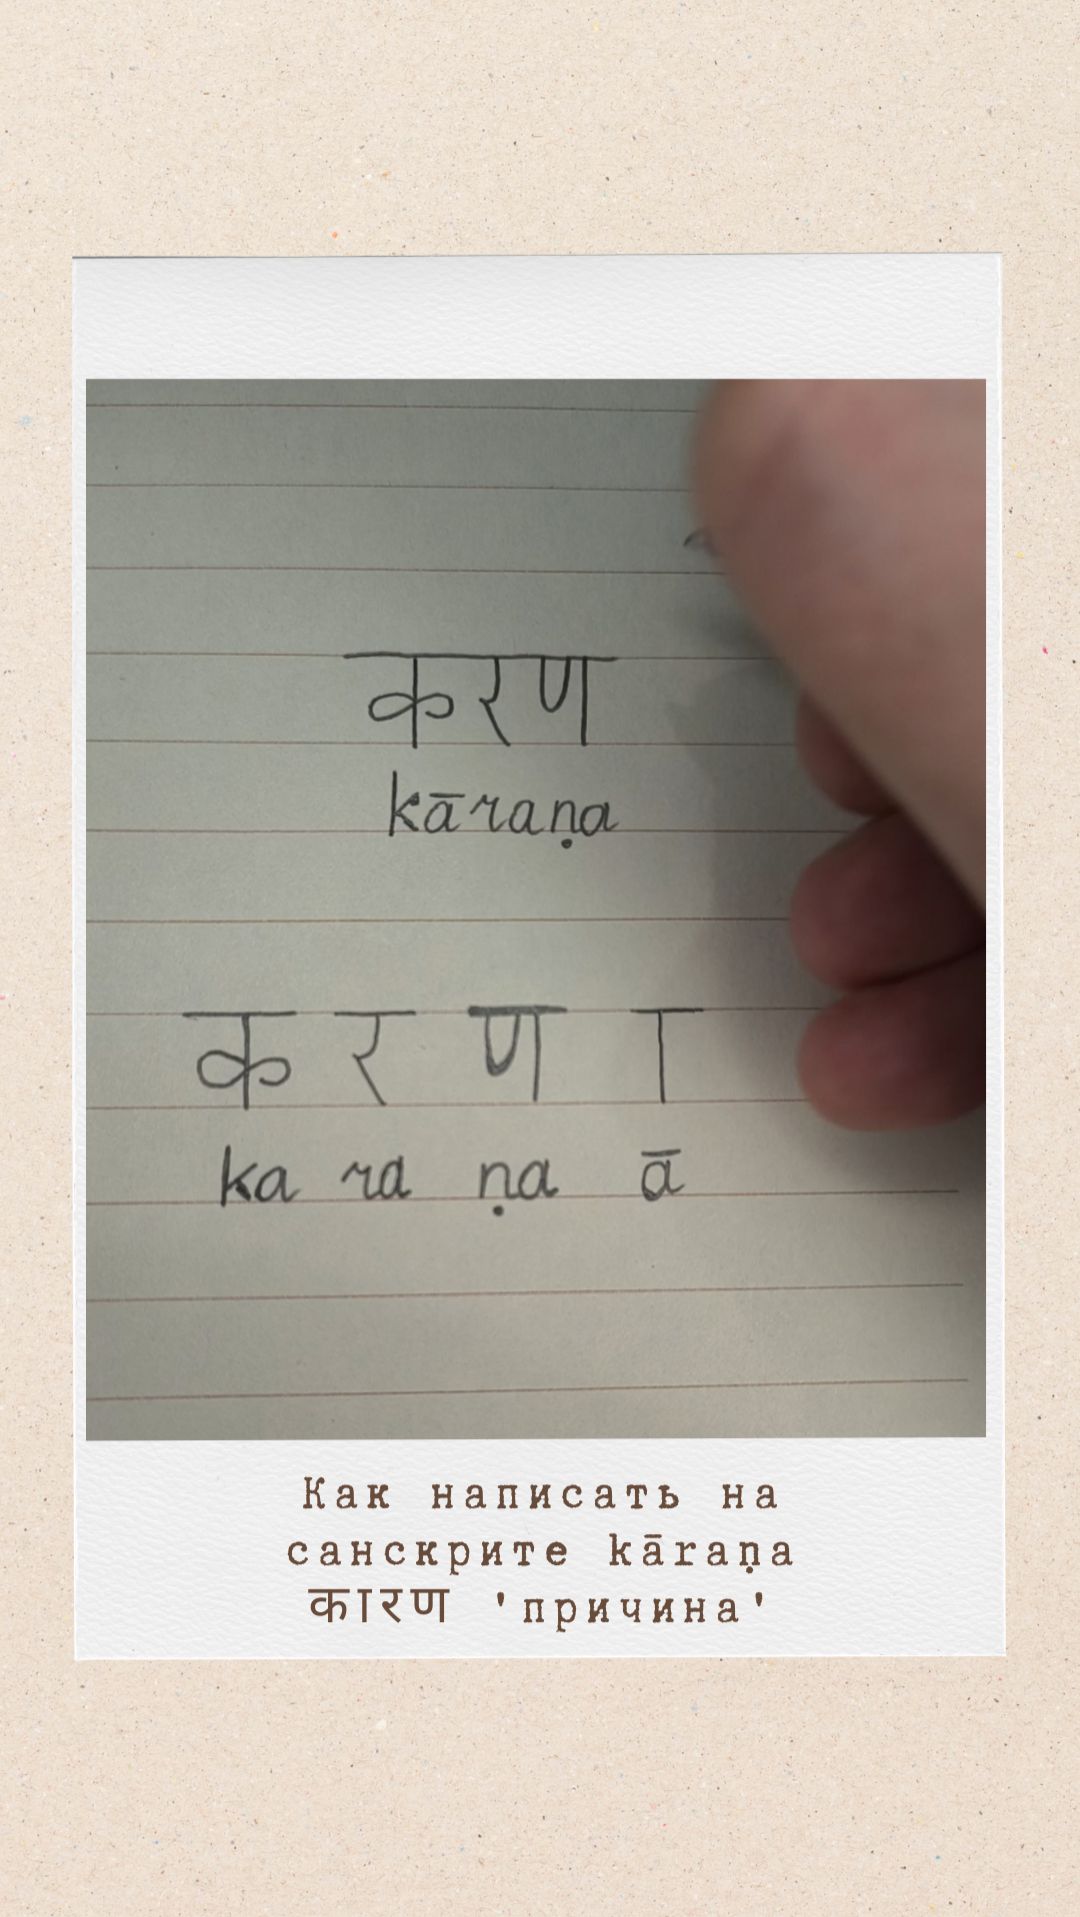 करण
kāraṇa
क र ण ा
ka ra ṇa ā
Как написать на
санскрите kāraṇa
कारण 'причина'